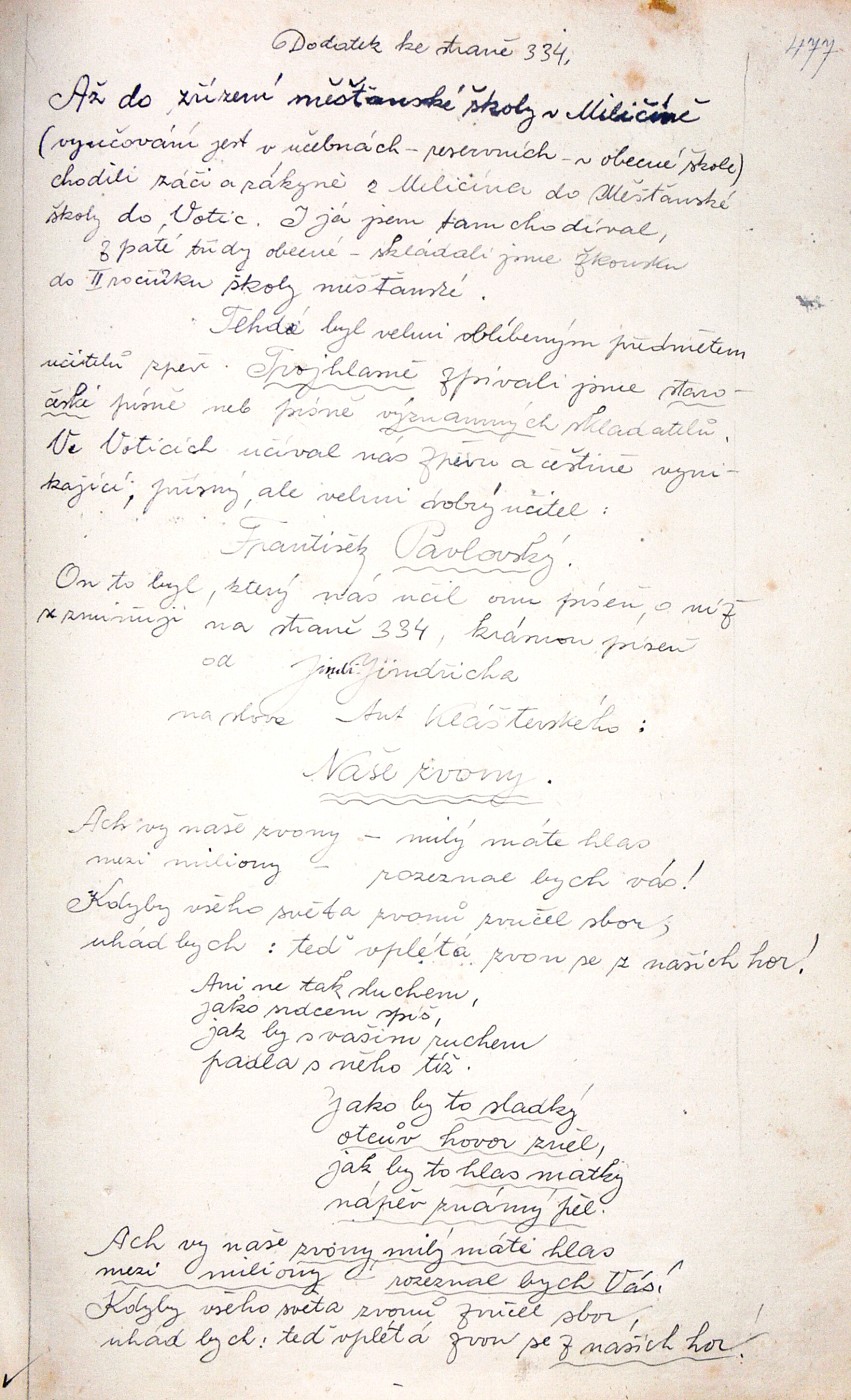 Dodatek ke straně 334.
477
Až do zřízení měšťanské školy v Miličíně
(vyučování jest v učebnách - reservních - v obecné škole)
chodili žáci a žákyně z Miličína do Měšťanské
školy do Votic. I já jsem tam chodíval,
z páté třídy obecné - skládali jsme zkoušku
do II ročníku školy měšťanské.
Tehdá byl velmi oblíbeným předmětem
učitelů zpěv. Trojhlasně zpívali jsme staro-
české písně neb písně významných skladatelů.
Ve Voticích učíval nás zpěvu a češtině vyni-
kající, přísný, ale velmi dobrý učitel:
František Pavlovský.
On to byl, který nás učil onu píseň, o níž
zmiňuji na straně 334, krásnou píseň
od Jindř. Jindřicha
na slova Ant Klášterského:
Naše zvony.
Ach vy naše zvony - milý máte hlas
mezi miliony - rozeznal bych vás!
Kdyby všeho světa zvonů zvučel sbor;
uhád bych: teď vplétá zvon se z našich hor!
Ani ne tak sluchem,
jako srdcem spíš,
jak by s vašim ruchem
padla s něho tíž.
Jako by to sladký
otcův hovor zněl,
jak by to hlas matky
nápěv známý pěl.
Ach vy naše zvony milý máte hlas
mezi miliony - rozeznal bych Vás!
Kdyby všeho světa zvonů zvučel sbor,
uhád bych: teď vplétá zvon se z našich hor!